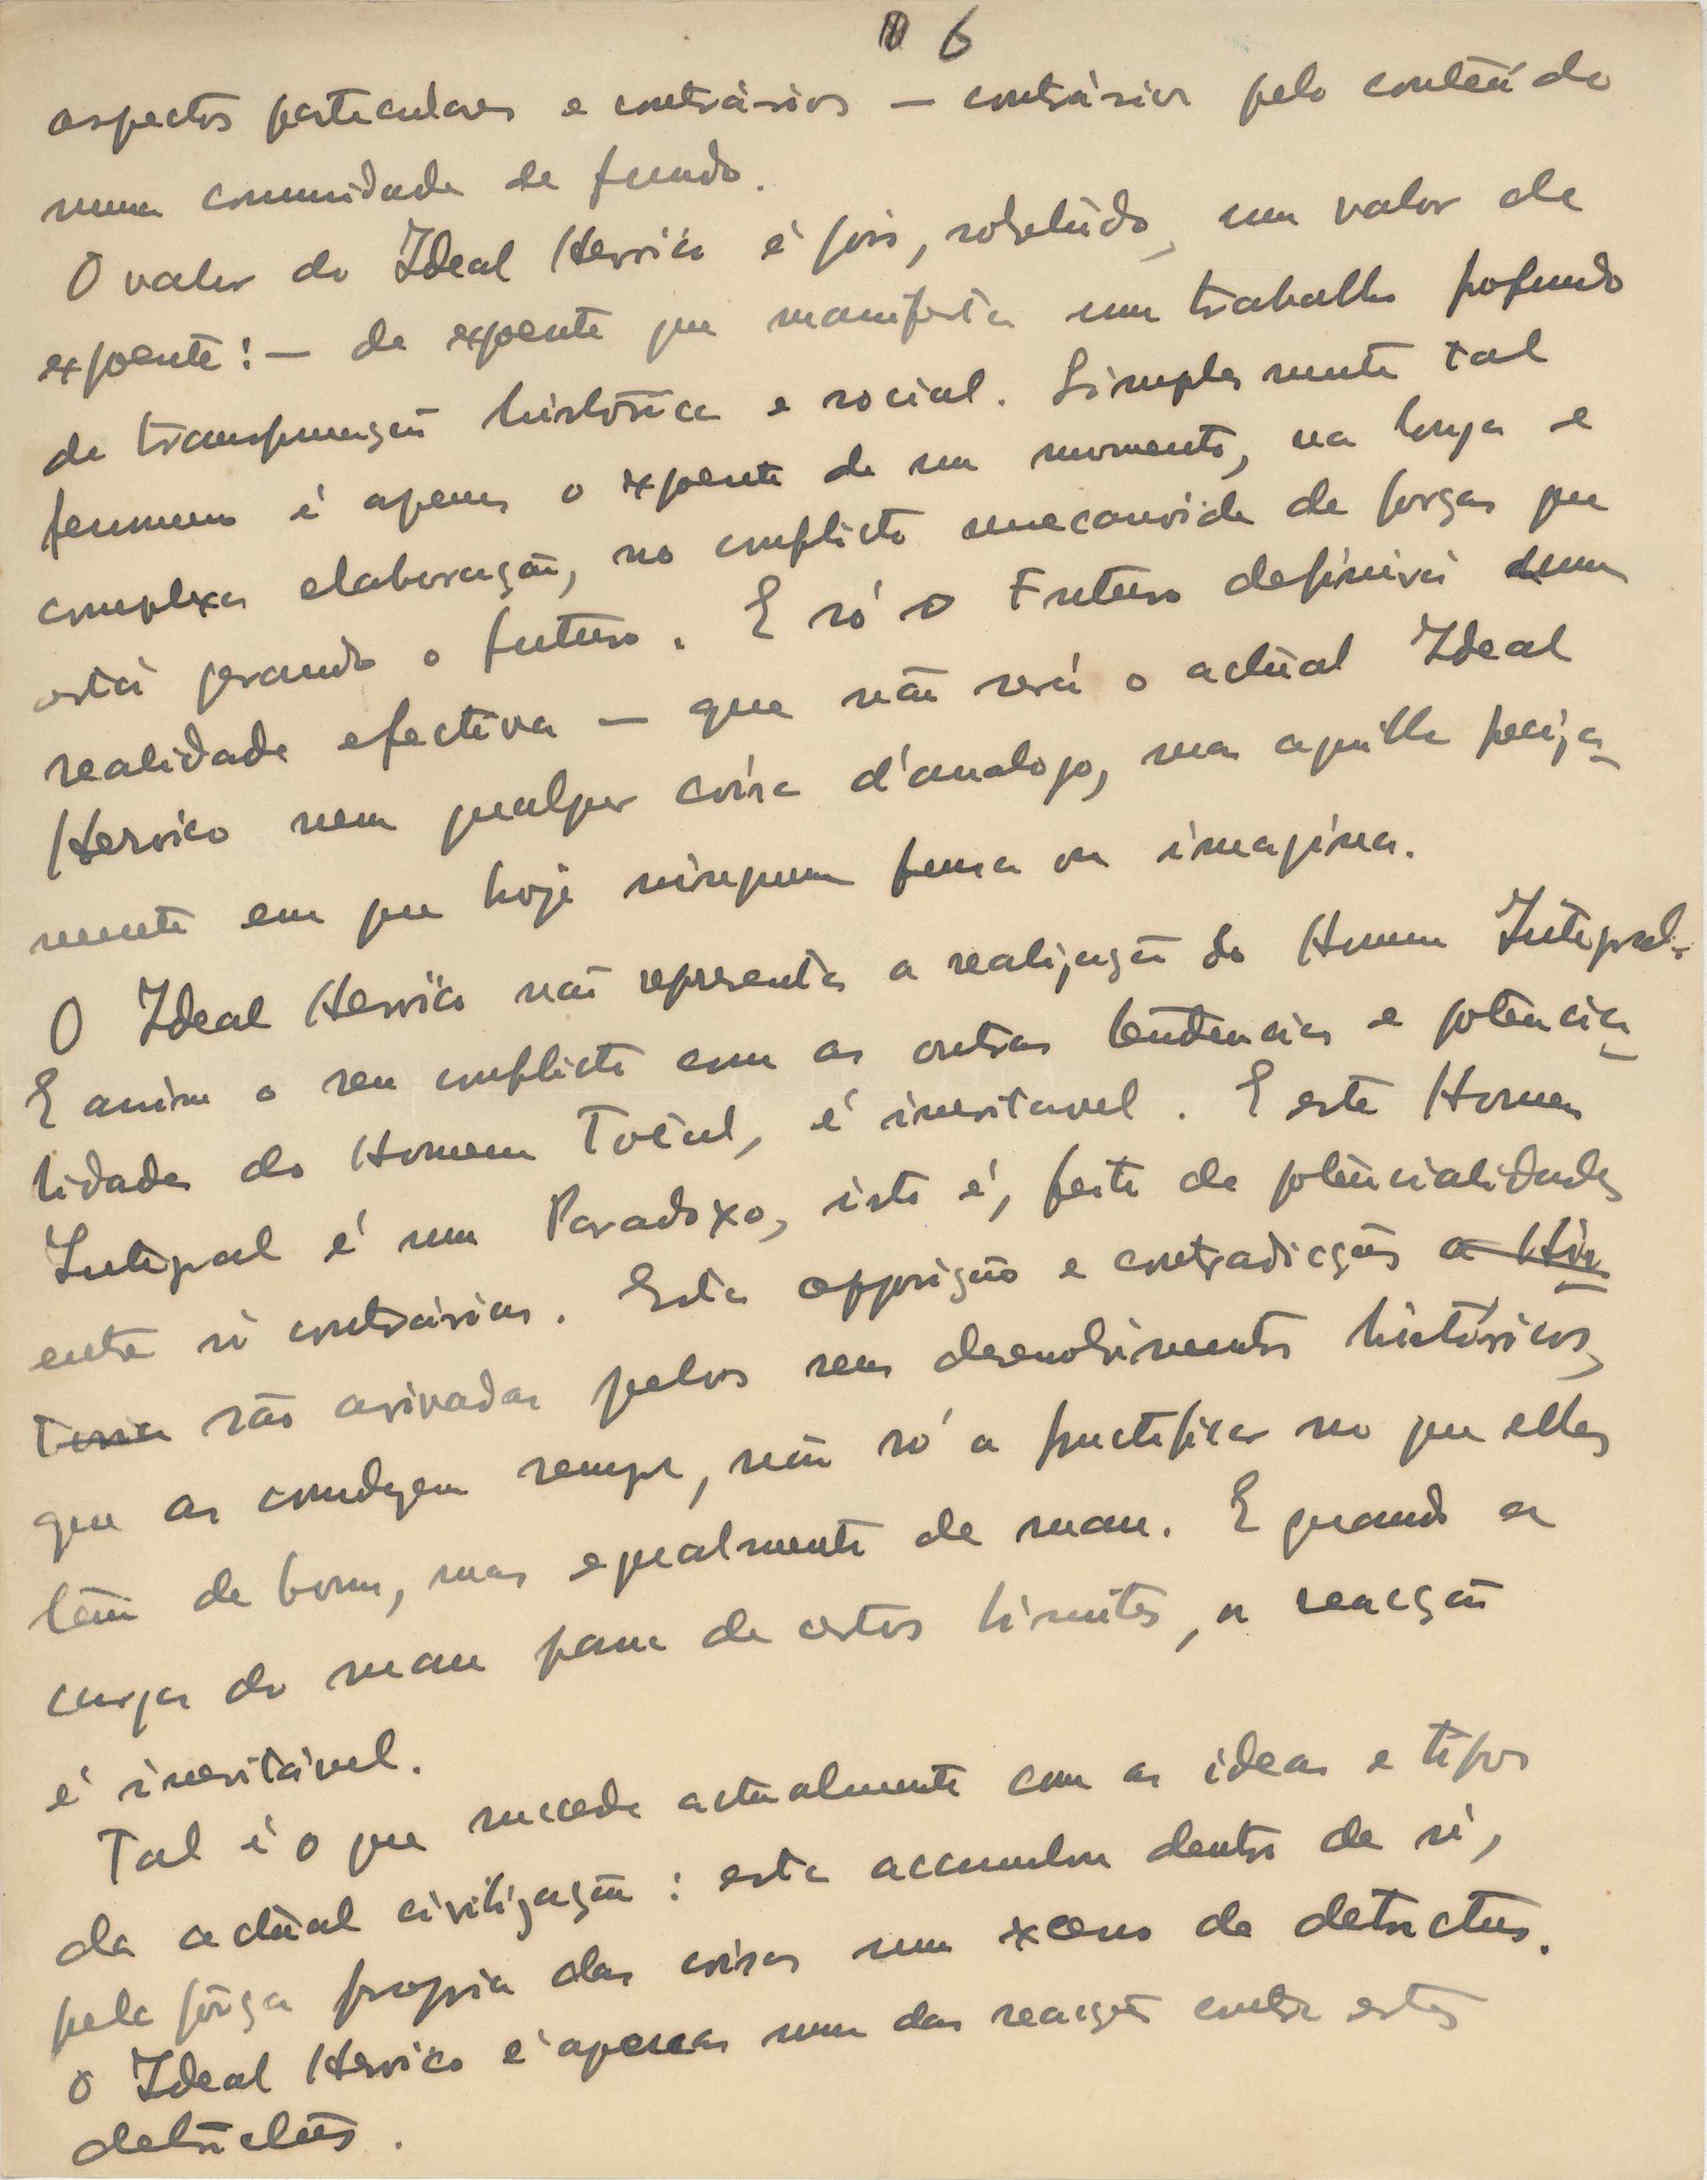 6
aspectos particulares e contrários — contrários pelo conteúdo
numa comunidade de fundo.
O valor do Ideal Heroico é pois, sobretúdo, um valor de
expoente: — de expoente que manifesta um trabalho profundo
de transformação histórica e social. Simplesmente tal
fenomeno é apenas o expoente de um momento, na longa e
complexa elaboração, no conflicto de forças que
está gerando o futuro. E só o Futuro definirá uma
realidade efectiva — que não será o actual Ideal
Heroico nem qualquer coisa d'analogo, mas aquilla preciza-
mente em que hoje ninguem pensa ou imagina.
O Ideal Heroico não representa a realização do Homem Integral.
E assim o seu conflicto com as outras tendencias e potencia-
lidades do Homem Total, é inevitavel. E este Homem
Integral é um Paradoxo, isto é, feito de potencialidades
entre si contrárias. Esta opposição e contradicção a His-
toria são avivadas pelos seus desenvolvimentos históricos,
que as conduzem sempre, não só a fructificar no que elles
têm de bom, mas egualmente de mau. E quando a
carga do mau passa de certos limites, a reacção
é inevitável.
Tal é o que succede actualmente com as ideas e tipos
da actual civilização: esta accumulou dentro de si,
pela força propria das coisas um excesso de detrictus.
O Ideal Heroico é apenas uma das reacções contra estes
detrictus.